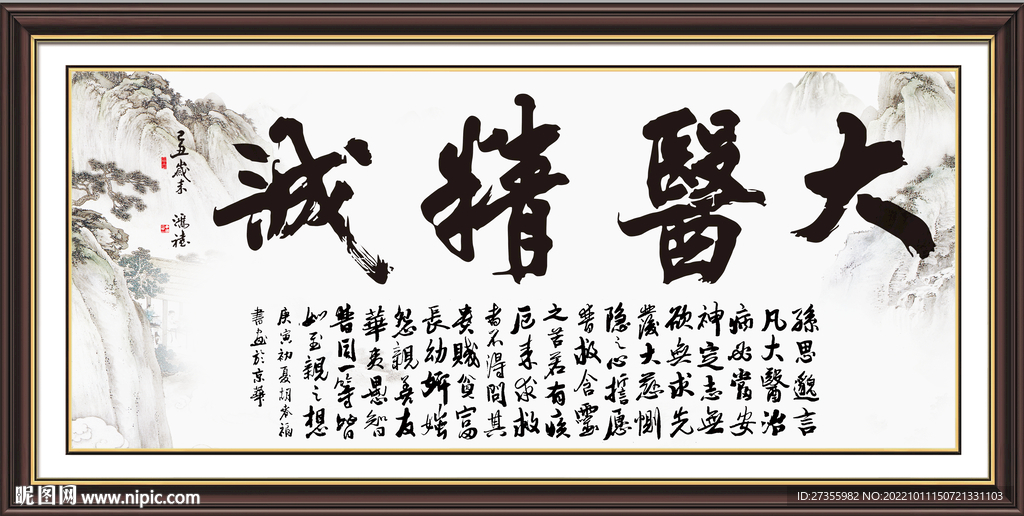 大醫精誠
孫思邈言
凡大醫治
病必當安
神定志無
欲無求先
發大慈惻
隐之心誓愿
普救含靈
之苦若有疾
厄来求救
者不得問其
貴賤貧富
長幼妍媸
怨親善友
華夷愚智
普同一等皆
如至親之想
庚寅初夏胡
書畫於京華
歲末
昵图网 www.nipic.com
ID:27355982 NO:20221011150721331103